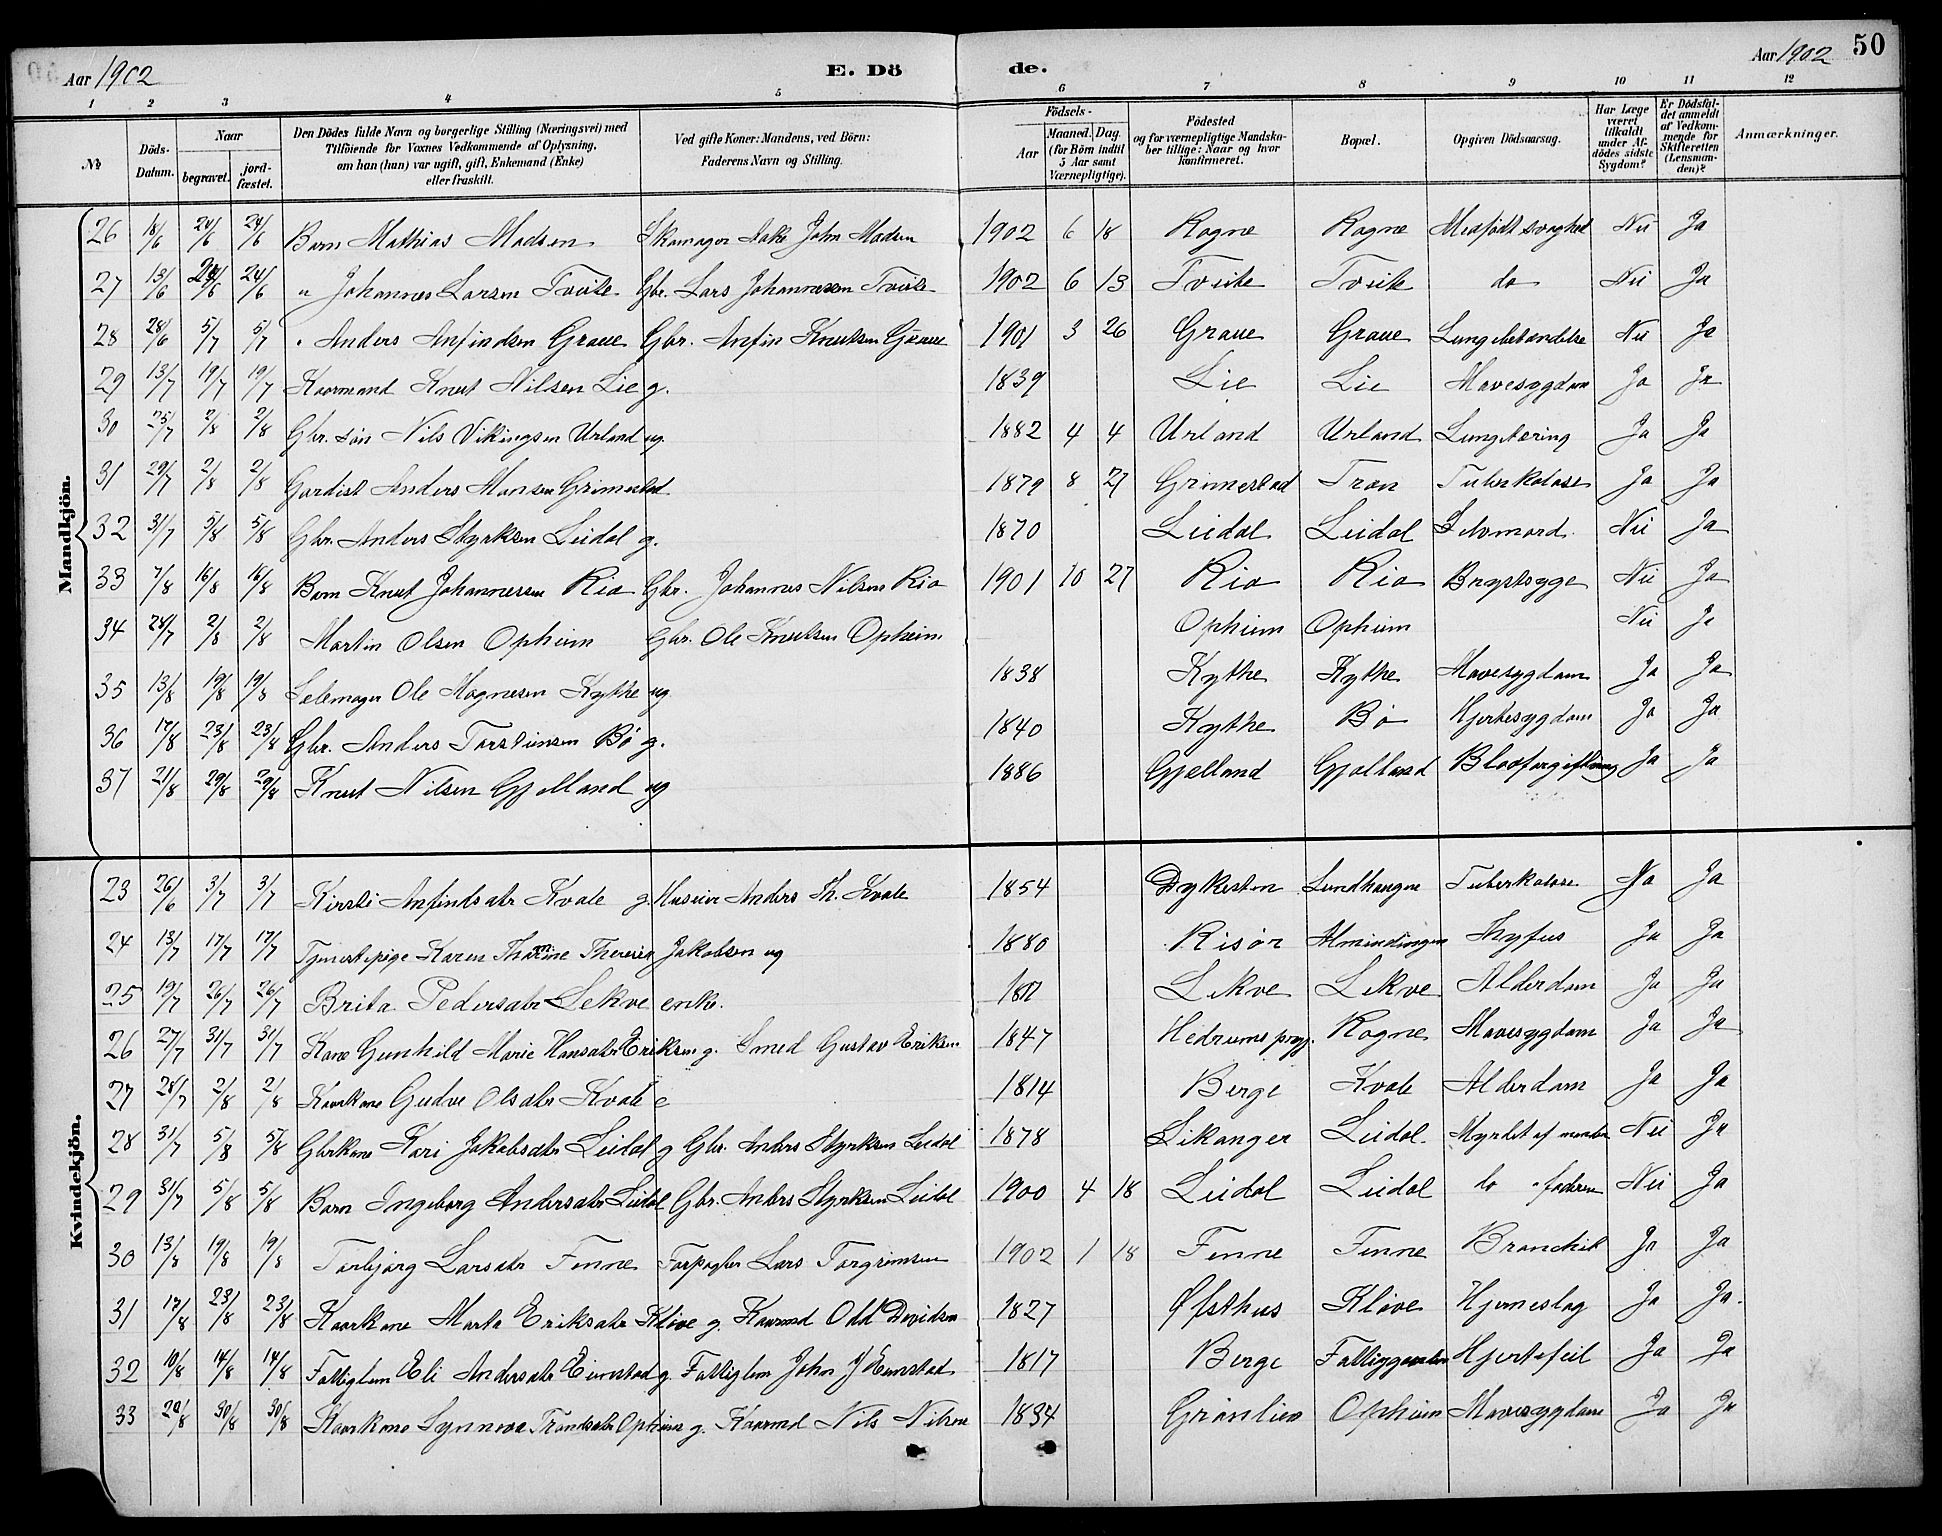 Aar 1902 E. Dö de. Aar 1902 50
1 2 3 4 5 6 7 8 9 10 11 12
No Döds-Datum. Naar begravet. jordfæstet. Den Dödes fulde Navn og borgerlige Stilling (Næringsvei) med Tilföiende for Voxnes Vedkommende af Oplysning, om han (hun) var ugift, gift, Enkemand (Enke) eller fraskilt. Ved gifte Koner: Mandens, ved Börn: Faderens Navn og Stilling. Födsels- Aar Maaned. Dag. (for Börn indtil 5 Aar samt Værnepligtige). Födested og for værnepligtige Mandskaber tillige: Naar og hvor konfirmeret. Bopæl. Opgiven Dödsaarsag. Har Læge været tilkaldt under Afdödes sidste Sygdom? Er Dödsfaldet anmeldt af Vedkommende for Skifteretten (Lensmanden)? Anmærkninger.
Mandkjön.
26 18/6 24/6 24/6 Barn Mathias Madsen Skomager John Madsen 1902 6 18 Rogne Rogne Medfødt svaghed Nei Ja
27 13/6 24/6 24/6 " Johannes Larsen Tvite Gbr. Lars Johannessen Tvite 1902 6 13 Tveite Tveite do Nei Ja
28 28/6 5/7 5/7 " Anders Anfindsen Graue Gbr. Anfin Knutsen Graue 1901 3 26 Graue Graue Lungebetændelse Nei Ja
29 13/7 19/7 19/7 Kaarmand Knut Nilsen Lie g. 1839 Lie Lie Mavesygdom Ja Ja
30 25/7 2/8 2/8 Gbr. søn Nils Vikingsen Urland ug 1882 4 4 Urland Urland Lungetæring Ja Ja
31 29/7 2/8 2/8 Gardist Anders Monsen Grimestad 1879 8 27 Grimestad Træn Tuberkolose Ja Ja
32 31/7 5/8 5/8 Gbr. Anders Styrksen Leidal g. 1870 Leidal Leidal Selvmord. Nei Ja
33 7/8 16/8 16/8 Barn Knut Johannessen Rio Gbr. Johannes Nilsen Rio 1901 10 27 Rio Rio Brystsyge Nei Ja
34 28/7 2/8 2/8 Martin Olsen Opheim Gbr. Ole Knutsen Opheim Opheim Opheim Nei Ja
35 13/8 19/8 19/8 Selemager Ole Magnesen Kythe ug 1838 Kythe Kythe Mavesygdom Ja Ja
36 17/8 23/8 23/8 Gbr. Anders Torsteinsen Bø g. 1840 Kythe Bø Hjertesygdom Ja Ja
37 21/8 29/8 29/8 Knut Nilsen Gjelland ug 1886 Gjelland Gjelland Blodforgiftning Ja Ja
Kvindekjön.
23 26/6 3/7 3/7 Kirsti Anfindsdtr Kvale g. Huseier Anders Th. Kvale 1854 Dykesten Lundhaugne Tuberkolose Ja Ja
24 13/7 17/7 17/7 Tjenestepige Karen Thomine Theresia Jakobsen ug 1880 Risør Almindingen Thyfus Ja Ja
25 19/7 26/7 26/7 Brita Pedersdtr Lekve enke. Lekve Lekve Alderdom Ja Ja
26 27/7 31/7 31/7 Kone Gunhild Marie Hansdtr Eriksen g. Smed Gustav Eriksen 1847 Hedrums prgj. Rogne Mavesygdom Ja Ja
27 28/7 2/8 2/8 Kaarkone Gudve Olsdtr Kvale e 1814 Berge Kvale Alderdom Ja Ja
28 31/7 5/8 5/8 Gbrkone Kari Jakobsdtr Leidal g Gbr. Anders Styrksen Leidal 1878 Leikanger Leidal. Myrdet af manden Nei Ja
29 31/7 5/8 5/8 Barn Ingeborg Andersdtr Leidal Gbr. Anders Styrksen Leidal 1900 4 18 Leidal Leidal do " faderen Nei Ja
30 13/8 19/8 19/8 Torbjørg Larsdtr Finne Forpagter Lars Torgrimsen 1902 1 18 Finne Finne Bronchit Ja Ja
31 17/8 23/8 23/8 Kaarkone Marta Eriksdtr Kløve g. Kaarmd Odd Davidsen 1827 Øfsthus Kløve Hjerneslag Ja Ja.
32 10/8 14/8 14/8 Fattiglem Eli Andersdtr Eimstad g. Fattiglem John J Eimstad 1817 Berge Fattiggaarden Hjertefeil Ja Ja
33 29/8 30/8 30/8 Kaarkone Synneva Trondsdtr Opheim g. Kaarmd Nils Nilsen 1834 Grønlien Opheim Mavesygdom Ja Ja